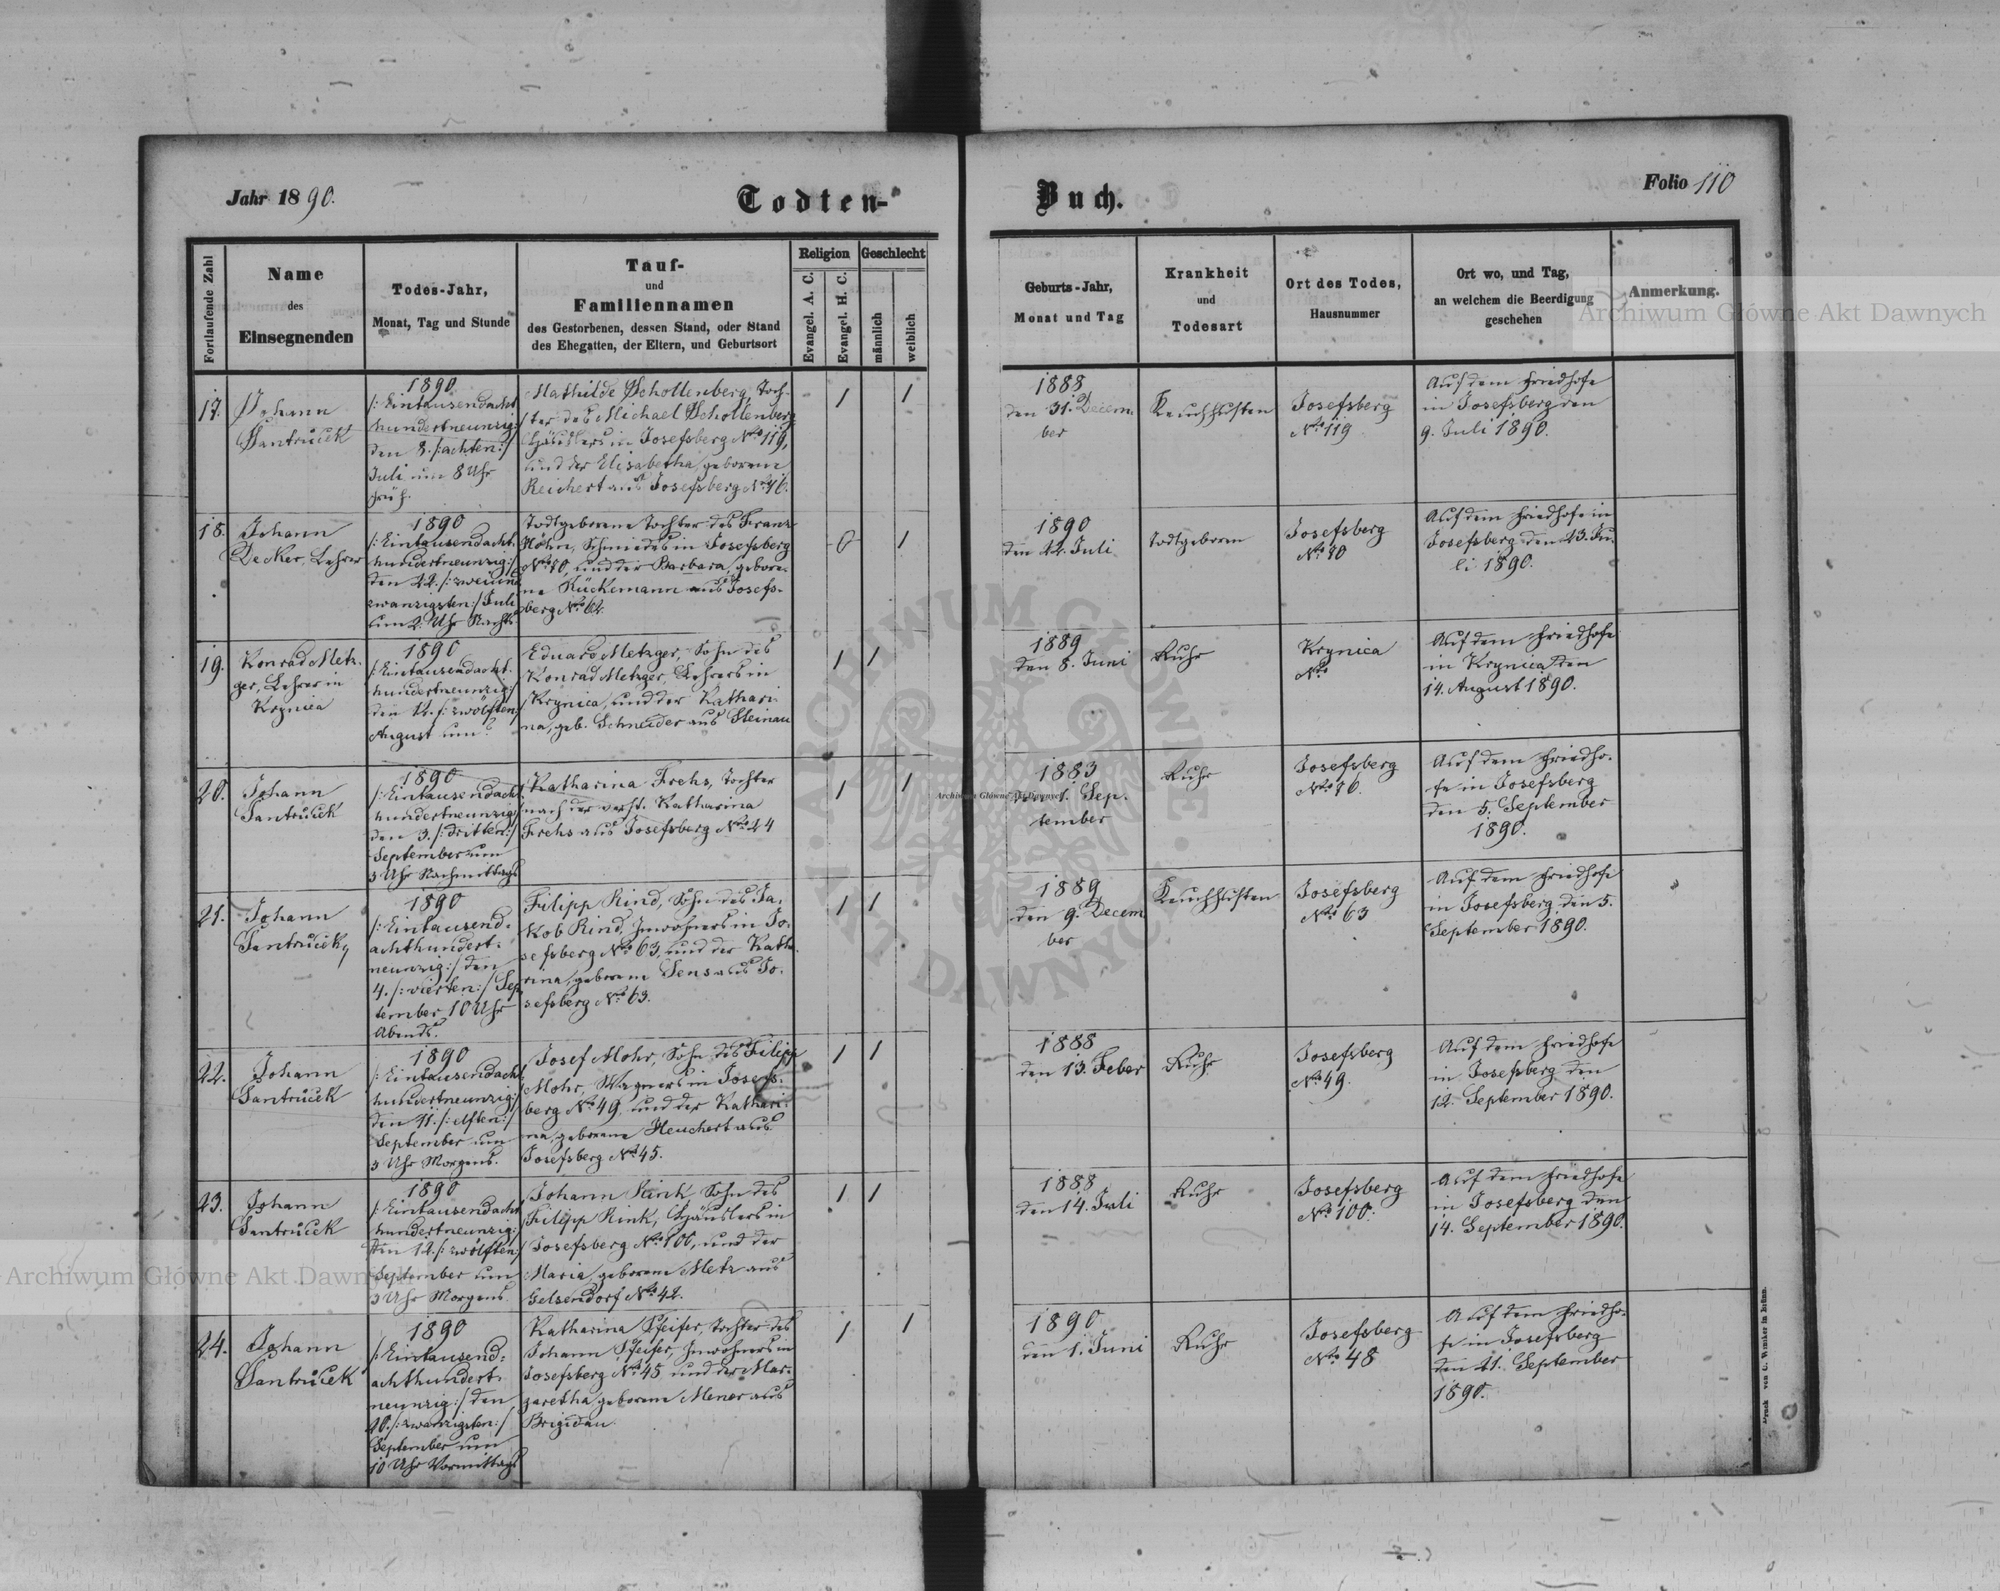 Jahr 1890.
Todten-
Buch.
Folio 110
Fortlaufende Zahl
Name
des
Einsegnenden
Todes-Jahr,
Monat, Tag und Stunde
Tauf-
und
Familiennamen
des Gestorbenen, dessen Stand, oder Stand
des Ehegatten, der Eltern, und Geburtsort
Religion
Evangel. A. C.
Evangel. H. C.
Geschlecht
männlich
weiblich
Geburts-Jahr,
Monat und Tag
Krankheit
und
Todesart
Ort des Todes,
Hausnummer
Ort wo, und Tag,
an welchem die Beerdigung
geschehen
Anmerkung.
17.
Johann
Santrůček
1890
/: Eintausendacht
hundertneunzig :/
den 8. /: achten :/
Juli um 8 Uhr
früh.
Mathilde Schollenberg, Toch-
ter des Michael Schollenberg
Häuslers in Josefsberg No 119,
und der Elisabetha, geborene
Reichert aus Josefsberg No 76.
1
1
1888
den 31. Decem-
ber
Keuchhusten
Josefsberg
No 119
Auf dem Friedhofe
in Josefsberg den
9. Juli 1890.
18.
Johann
Decker, Lehrer
1890
/: Eintausendacht-
hundertneunzig :/
den 22. /: zweiund
zwanzigsten :/ Juli
um 2. Uhr Nachts
Todtgeborene Tochter des Franz
Höhn, Schmiedes in Josefsberg
No 70, und der Barbara, gebore-
ne Rückemann aus Josefs-
berg No 62.
0
1
1890
den 22. Juli
Todtgeboren
Josefsberg
No 70
Auf dem Friedhofe in
Josefsberg den 23. Ju-
li 1890.
19.
Konrad Metz-
ger, Lehrer in
Krynica
1890
/: Eintausendacht-
hundertneunzig :/
den 12. /: zwölften :/
August um ?
Eduard Metzger, Sohn des
Konrad Metzger, Lehrers in
Krynica, und der Kathari-
na, geb. Schneider aus Steinau
1
1
1889
den 8. Juni
Ruhr
Krynica
No
Auf dem Friedhofe
in Krynica den
14. August 1890.
20.
Johann
Santrůček
1890
/: Eintausendacht
hundertneunzig :/
den 3. /: dritten :/
September um
3 Uhr Nachmittags
Katharina Frehs, Tochter
nach der verst. Katharina
Frehs aus Josefsberg No 24
1
1
1883
den 1. Sep-
tember
Ruhr
Josefsberg
No 76.
Auf dem Friedho-
fe in Josefsberg
den 5. September
1890.
21.
Johann
Santrůček
1890
/: Eintausend-
achthundert-
neunzig :/ den
4. /: vierten :/ Sep
tember 10 Uhr
Abends.
Filipp Rind, Sohn des Ja-
kob Rind, Inwohners in Jo-
sefsberg No 63, und der Katha-
rina, geborene Sens aus Jo-
sefsberg No 63.
1
1
1889
den 9. Decem
ber
Keuchhusten
Josefsberg
No 63
Auf dem Friedhofe
in Josefsberg, den 5.
September 1890.
22.
Johann
Santrůček
1890
/: Eintausendacht
hundertneunzig :/
den 11. /: elften :/
September um
3 Uhr Morgens.
Josef Mohr, Sohn des Filipp
Mohr, Wagners in Josefs-
berg No 49, und der Kathari-
na, geborene Heuchert aus
Josefsberg No 45.
1
1
1888
den 13. Feber
Ruhr
Josefsberg
No 49.
Auf dem Friedhofe
in Josefsberg den
12. September 1890.
23.
Johann
Santrůček
1890
/: Eintausendacht
hundertneunzig :/
den 12. /: zwölften :/
September um
3 Uhr Morgens
Johann Rink, Sohn des
Filipp Rink, Häuslers in
Josefsberg No 100, und der
Maria, geborene Metz aus
Gelsendorf No 42.
1
1
1888
den 14. Juli
Ruhr
Josefsberg
No 100.
Auf dem Friedhofe
in Josefsberg den
14. September 1890.
24.
Johann
Santrůček
1890
/: Eintausend-
achthundert-
neunzig :/ den
20. /: zwanzigsten :/
September um
10 Uhr Vormittags
Katharina Pfeifer, Tochter des
Johann Pfeifer, Inwohners in
Josefsberg No 45 und der Mar-
garetha, geborene Mener aus
Brigidau
1
1
1890
den 1. Juni
Ruhr
Josefsberg
No 48
Auf dem Friedho-
fe in Josefsberg
den 21. September
1890.
Druck von C. Winiker in Brünn.
Archiwum Główne Akt Dawnych
Archiwum Główne Akt Dawnych
Archiwum Główne Akt Dawnych
ARCHIWUM GŁÓWNE AKT DAWNYCH